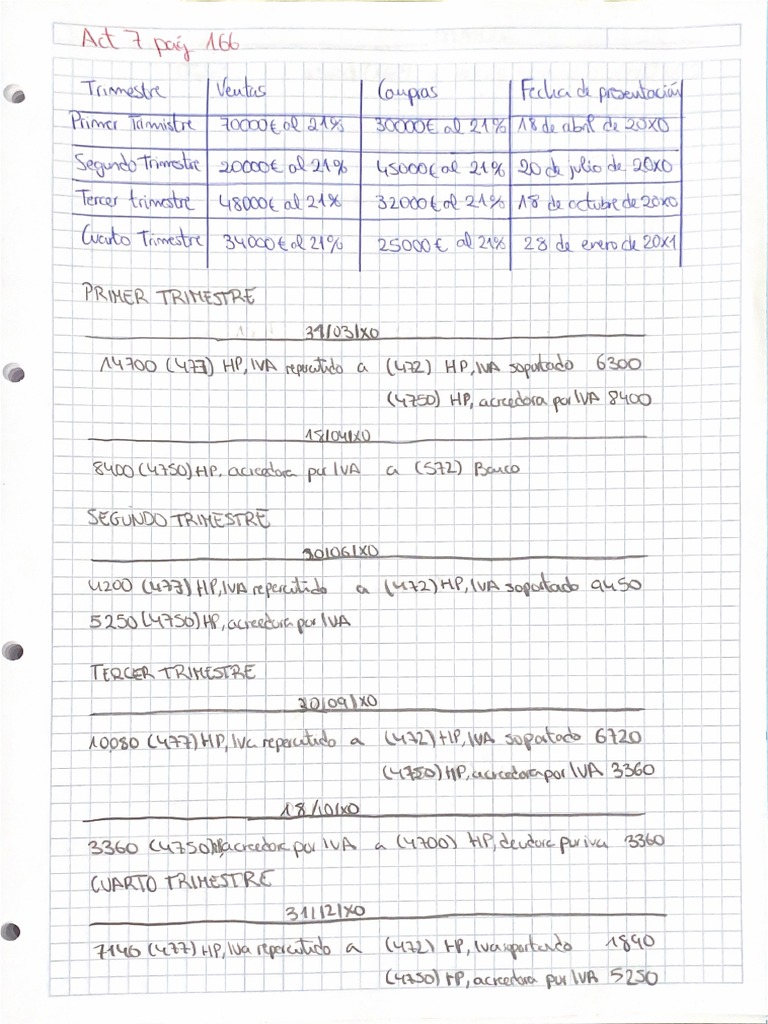 Act 7 paíg 166
Trimestre Ventas Compras Fecha de presentación
Primer Trimistre 70000€ al 21% 30000€ al 21% 18 de abril de 20X0
Segundo Trimestre 20000€ al 21% 45000€ al 21% 20 de julio de 20X0
Tercer trimestre 48000€ al 21% 32000€ al 21% 18 de octubre de 20X0
Cuarto Trimestre 34000€ al 21% 25000€ al 21% 28 de enero de 20X1
PRIMER TRIMESTRE
31/03/X0
14700 (477) HP, IVA repercutido a (472) HP, IVA soportado 6300
(4750) HP, acreedora por IVA 8400
18/04/X0
8400 (4750) HP, acreedora por IVA a (572) Banco
SEGUNDO TRIMESTRE
30/06/X0
4200 (477) HP, IVA repercutido a (472) HP, IVA soportado 9450
5250 (4750) HP, acreedora por IVA
TERCER TRIMESTRE
30/09/X0
10080 (477) HP, Iva repercutido a (472) HP, IVA soportado 6720
(4750) HP, acreedora por IVA 3360
18/10/X0
3360 (4750) HP, acreedora por IVA a (4700) HP, deudora por iva 3360
CUARTO TRIMESTRE
31/12/X0
7140 (477) HP, Iva repercutido a (472) HP, Iva soportado 1890
(4750) HP, acreedora por IVA 5250